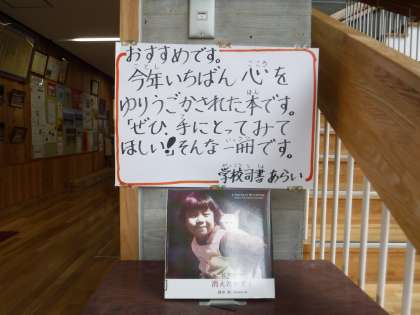 おすすめです。
今年いちばん心を
ゆりうごかされた本です。
「ぜひ、手にとってみて
ほしい!」そんな一冊です。
学校司書 あらい